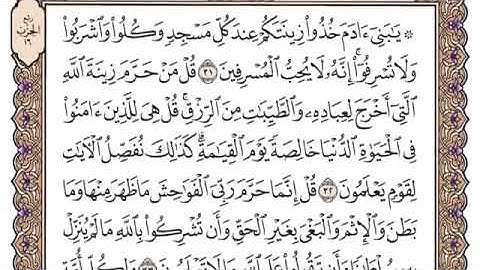 ۞ يَٰبَنِىٓ ءَادَمَ خُذُوا۟ زِينَتَكُمْ عِندَ كُلِّ مَسْجِدٍ وَكُلُوا۟ وَٱشْرَبُوا۟
وَلَا تُسْرِفُوٓا۟ ۚ إِنَّهُۥ لَا يُحِبُّ ٱلْمُسْرِفِينَ ٣١ قُلْ مَنْ حَرَّمَ زِينَةَ ٱللَّهِ
ٱلَّتِىٓ أَخْرَجَ لِعِبَادِهِۦ وَٱلطَّيِّبَٰتِ مِنَ ٱلرِّزْقِ ۚ قُلْ هِىَ لِلَّذِينَ ءَامَنُوا۟
فِى ٱلْحَيَوٰةِ ٱلدُّنْيَا خَالِصَةً يَوْمَ ٱلْقِيَٰمَةِ ۗ كَذَٰلِكَ نُفَصِّلُ ٱلْءَايَٰتِ
لِقَوْمٍ يَعْلَمُونَ ٣٢ قُلْ إِنَّمَا حَرَّمَ رَبِّىَ ٱلْفَوَٰحِشَ مَا ظَهَرَ مِنْهَا وَمَا
بَطَنَ وَٱلْإِثْمَ وَٱلْبَغْىَ بِغَيْرِ ٱلْحَقِّ وَأَن تُشْرِكُوا۟ بِٱللَّهِ مَا لَمْ يُنَزِّلْ
ربع
الحزب
١٦